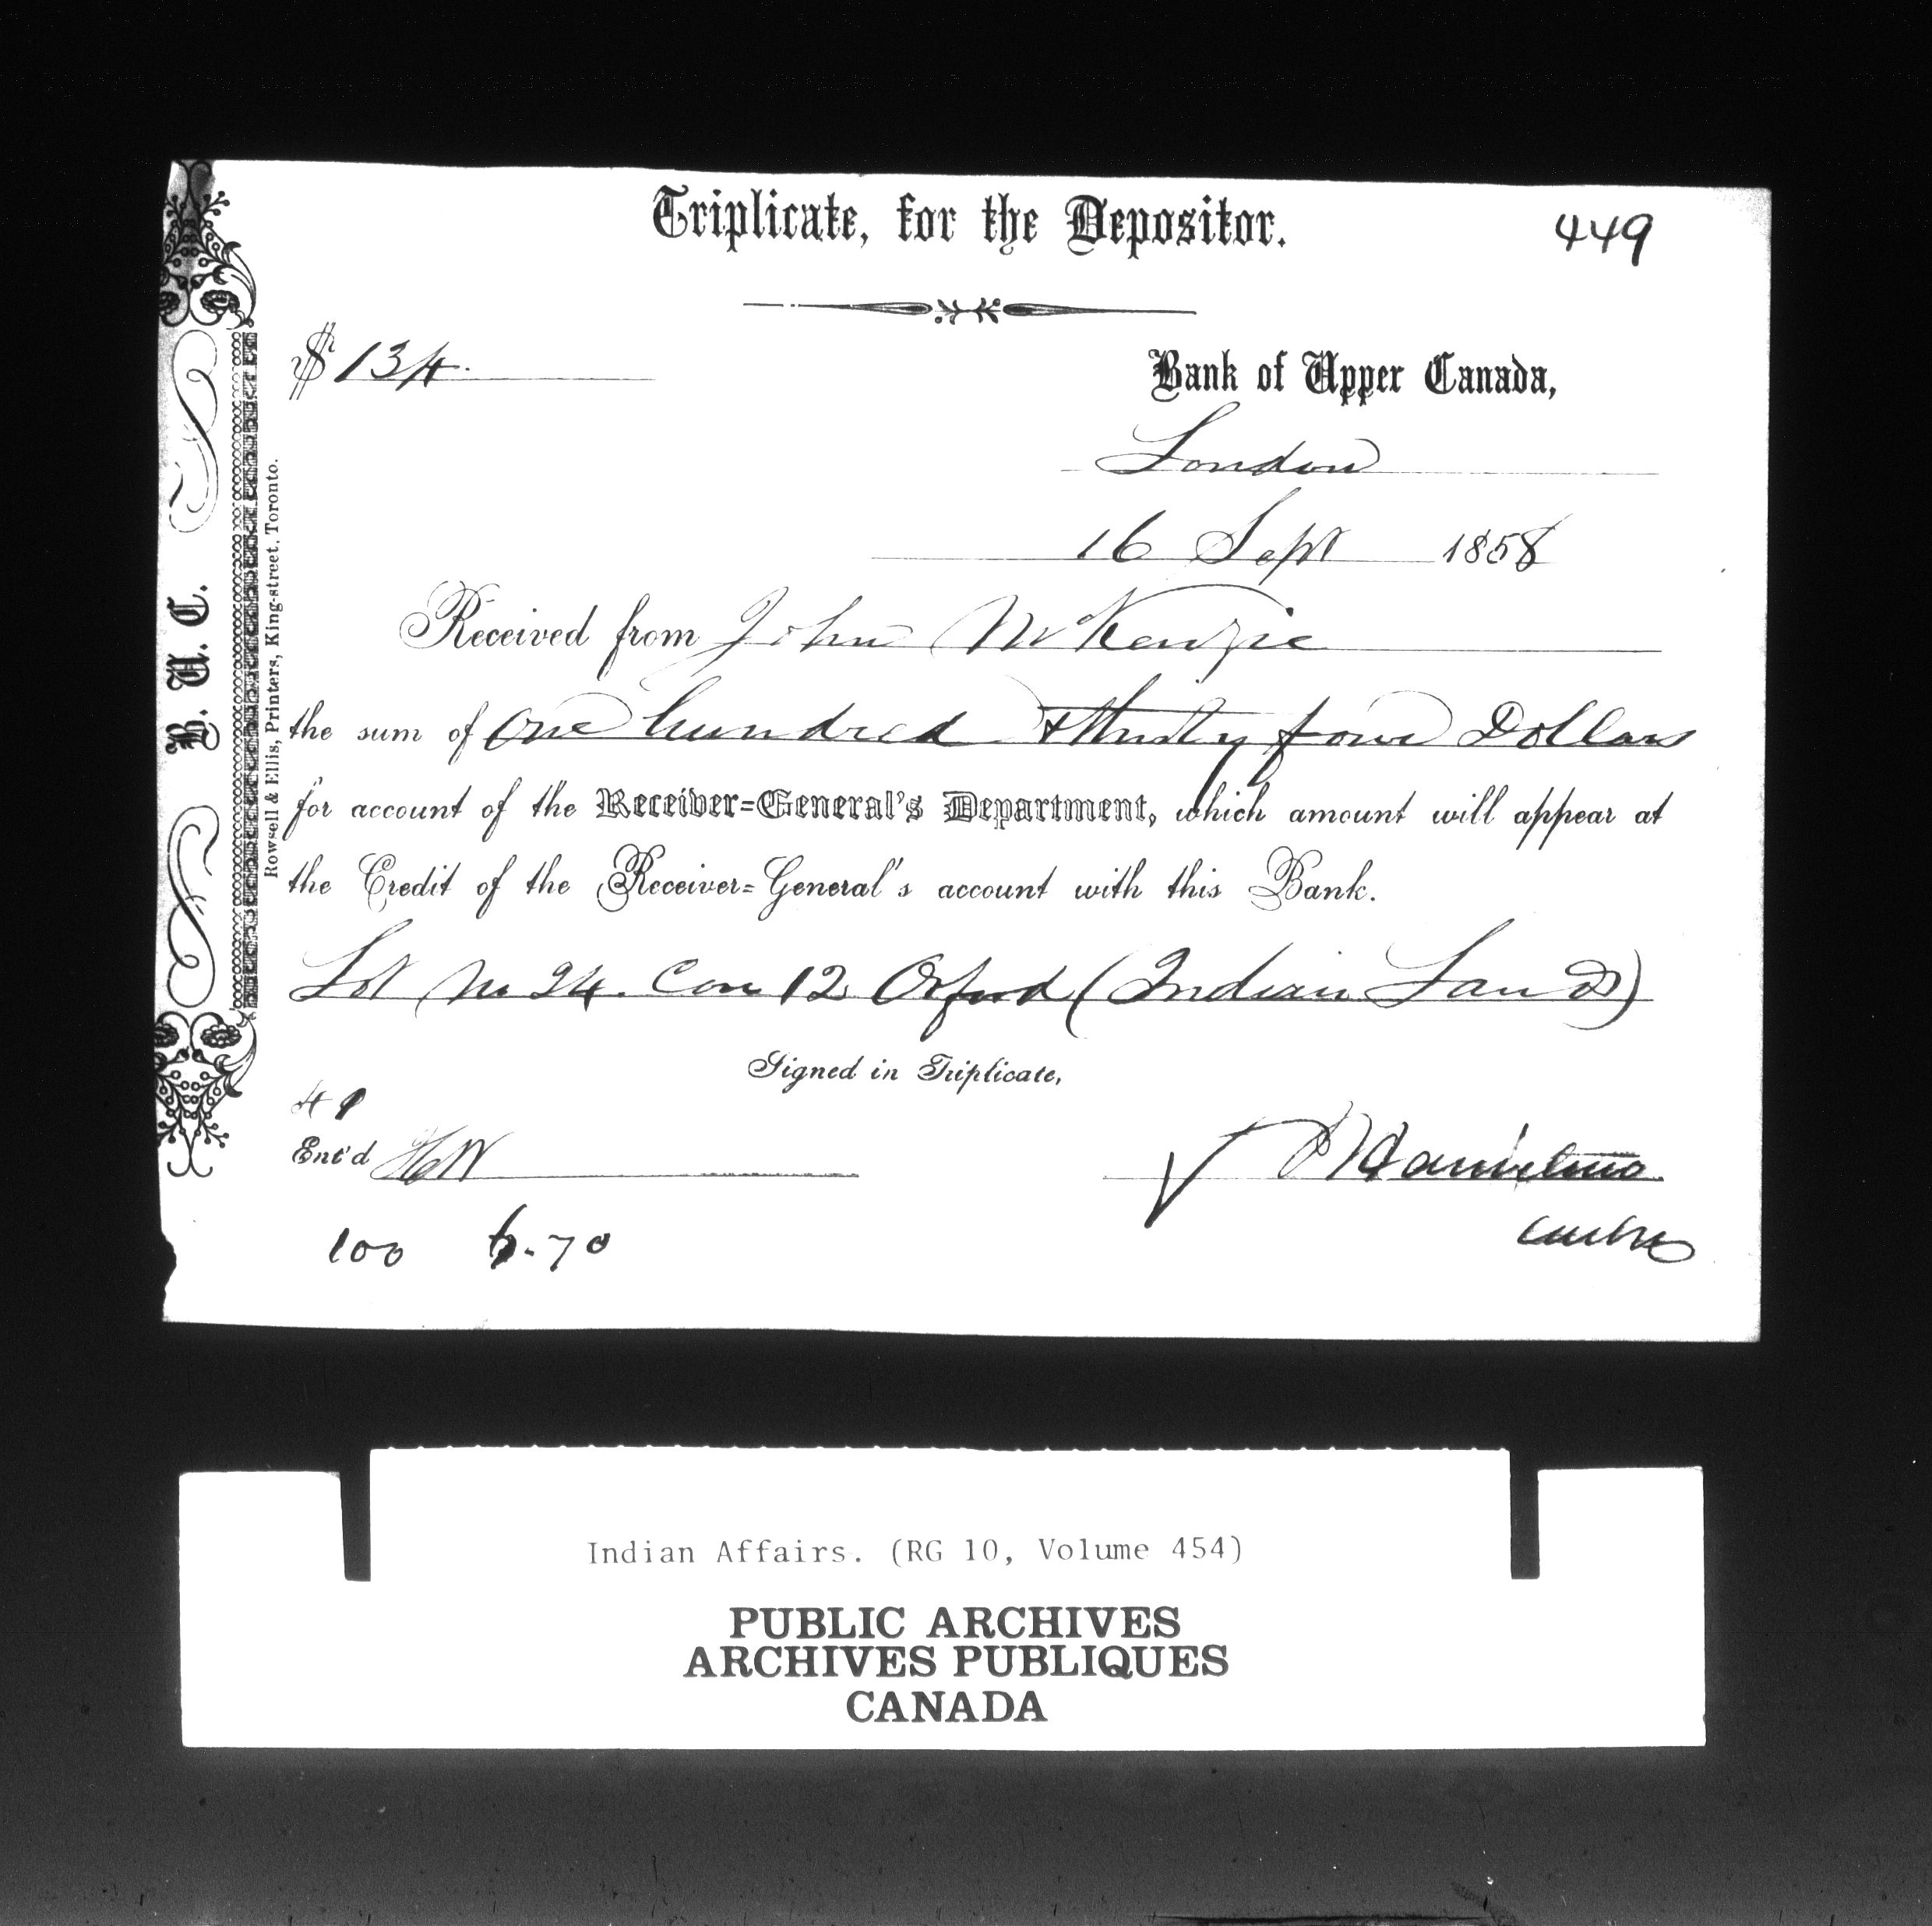 Triplicate, for the Depositor.
449
$ 134.
Bank of Upper Canada,
London
16 Sept 1858
Received from John McKenzie
the sum of One hundred & thirty four Dollars
for account of the Receiver=General's Department, which amount will appear at
the Credit of the Receiver=General's account with this Bank.
Lot No 24. Con 12 Orford (Indian Lands)
Signed in Triplicate,
Ent'd
100 6.70
B. U. C.
Rowsell & Ellis, Printers, King-street, Toronto.
Indian Affairs. (RG 10, Volume 454)
PUBLIC ARCHIVES
ARCHIVES PUBLIQUES
CANADA